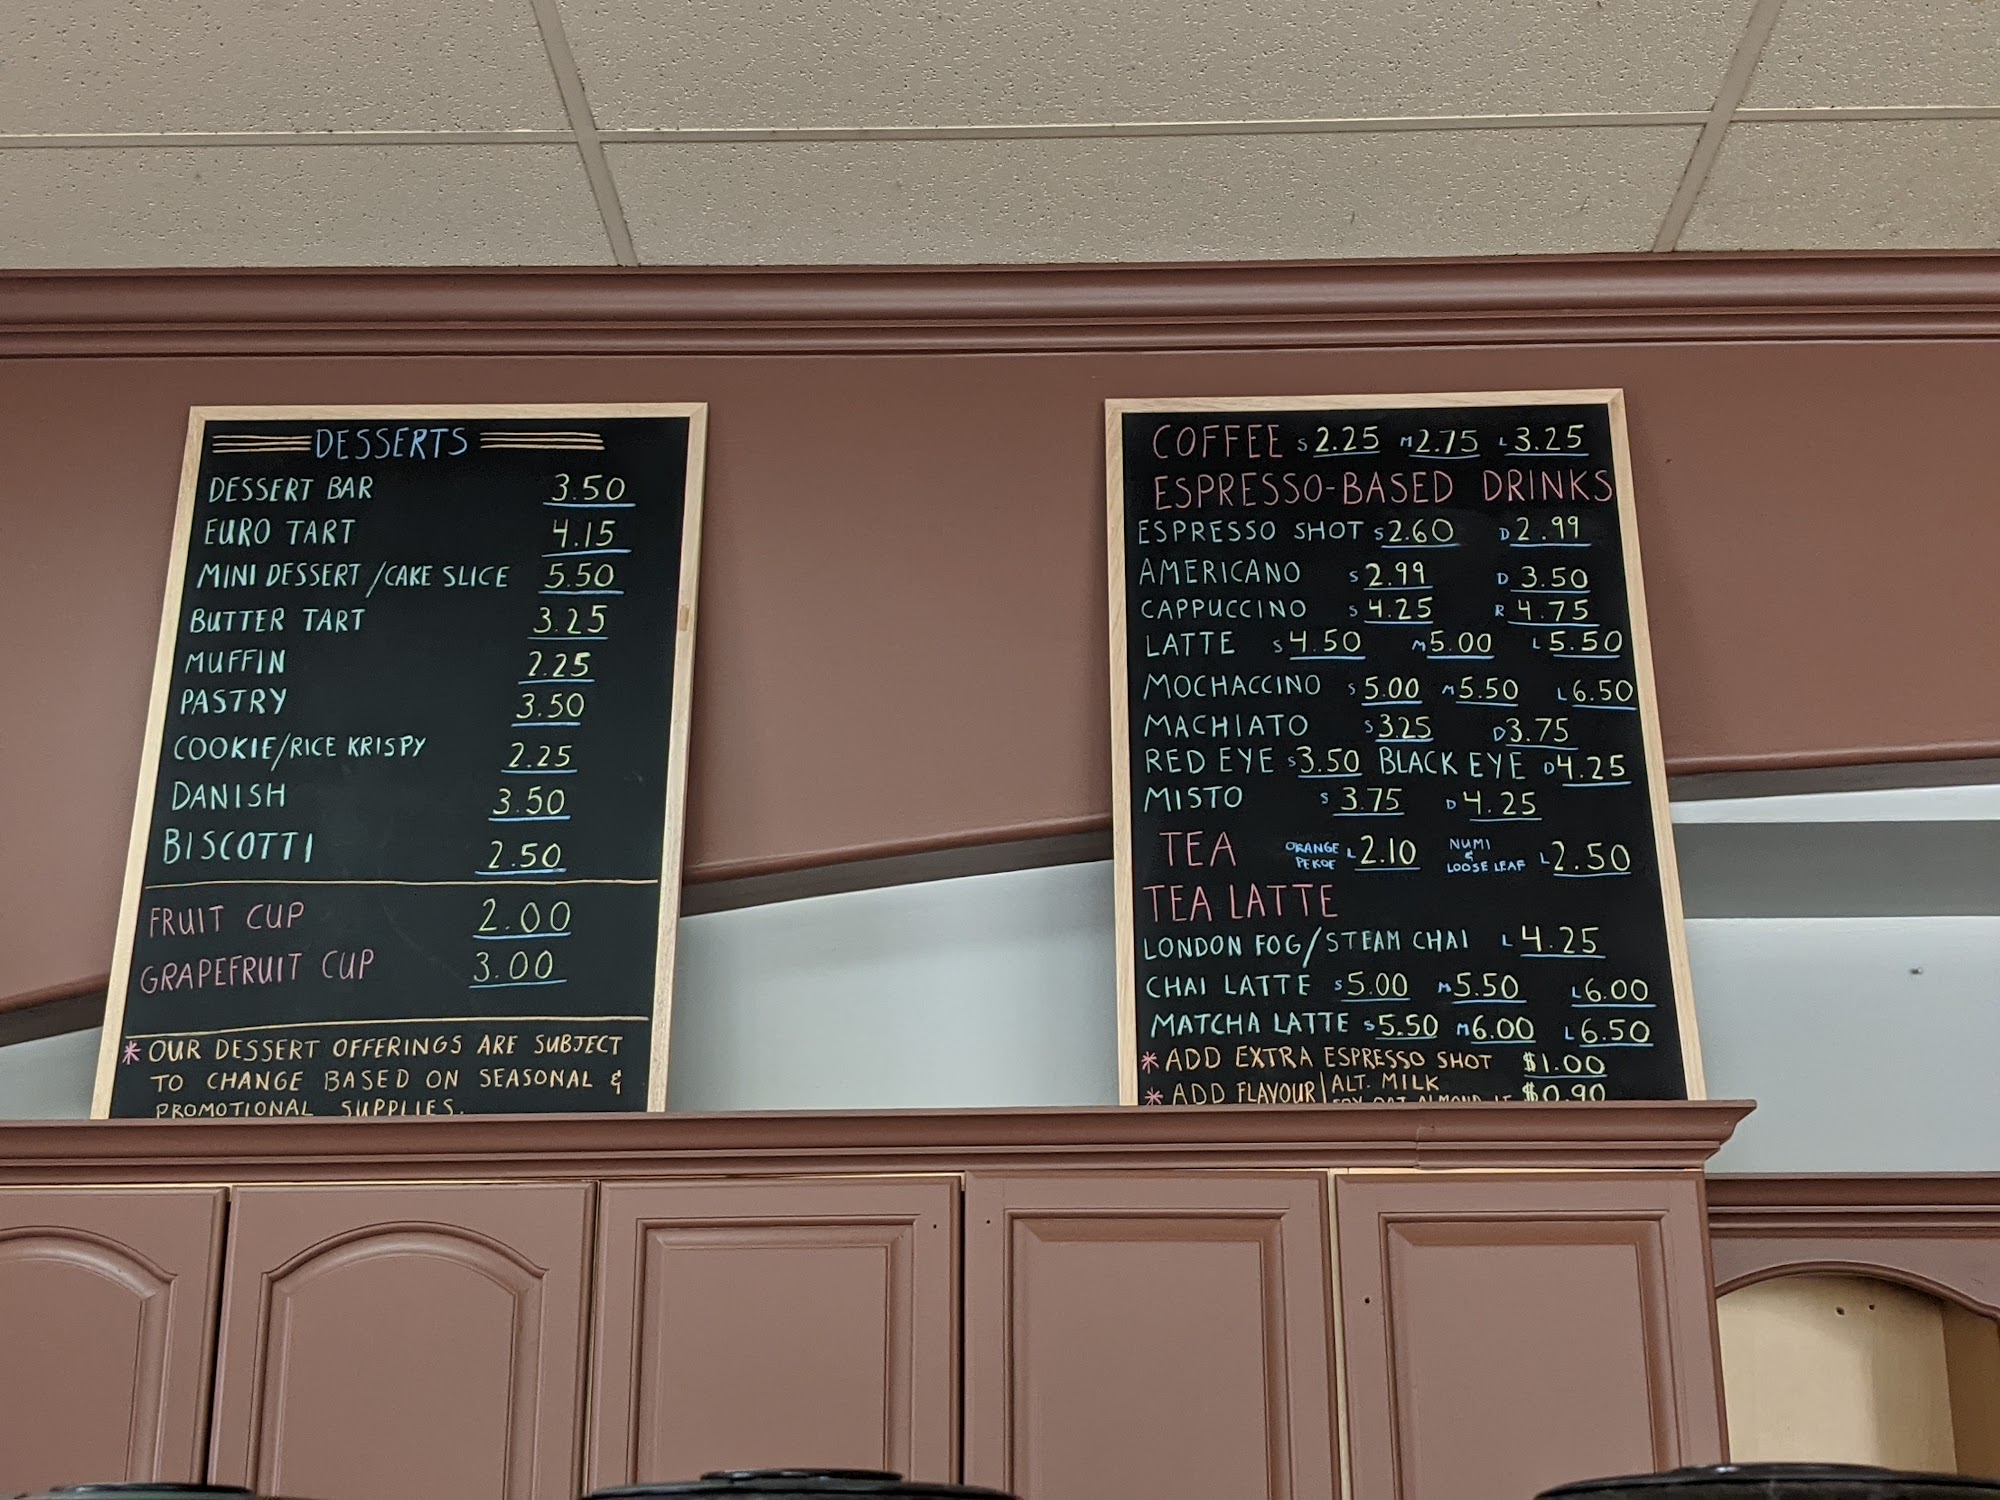 DESSERTS
DESSERT BAR 3.50
EURO TART 4.15
MINI DESSERT/CAKE SLICE 5.50
BUTTER TART 3.25
MUFFIN 2.25
PASTRY 3.50
COOKIE/RICE KRISPY 2.25
DANISH 3.50
BISCOTTI 2.50
FRUIT CUP 2.00
GRAPEFRUIT CUP 3.00
* OUR DESSERT OFFERINGS ARE SUBJECT
TO CHANGE BASED ON SEASONAL &
PROMOTIONAL SUPPLIES.
COFFEE S 2.25 M 2.75 L 3.25
ESPRESSO-BASED DRINKS
ESPRESSO SHOT S 2.60 D 2.99
AMERICANO S 2.99 D 3.50
CAPPUCCINO S 4.25 R 4.75
LATTE S 4.50 M 5.00 L 5.50
MOCHACCINO S 5.00 M 5.50 L 6.50
MACHIATO S 3.25 D 3.75
RED EYE S 3.50 BLACK EYE D 4.25
MISTO S 3.75 D 4.25
TEA ORANGE PEKOE L 2.10 NUMI & LOOSE LEAF L 2.50
TEA LATTE
LONDON FOG/STEAM CHAI L 4.25
CHAI LATTE S 5.00 M 5.50 L 6.00
MATCHA LATTE S 5.50 M 6.00 L 6.50
* ADD EXTRA ESPRESSO SHOT $1.00
* ADD FLAVOUR | ALT. MILK $0.90
OAT ALMOND